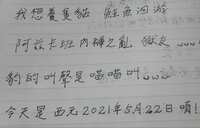 我想養隻貓 鮭魚洄游
阿茲卡班內褲之亂 微良 ....
豹的叫聲是喵喵叫。。。
今天是西元2021年5月22日唷!